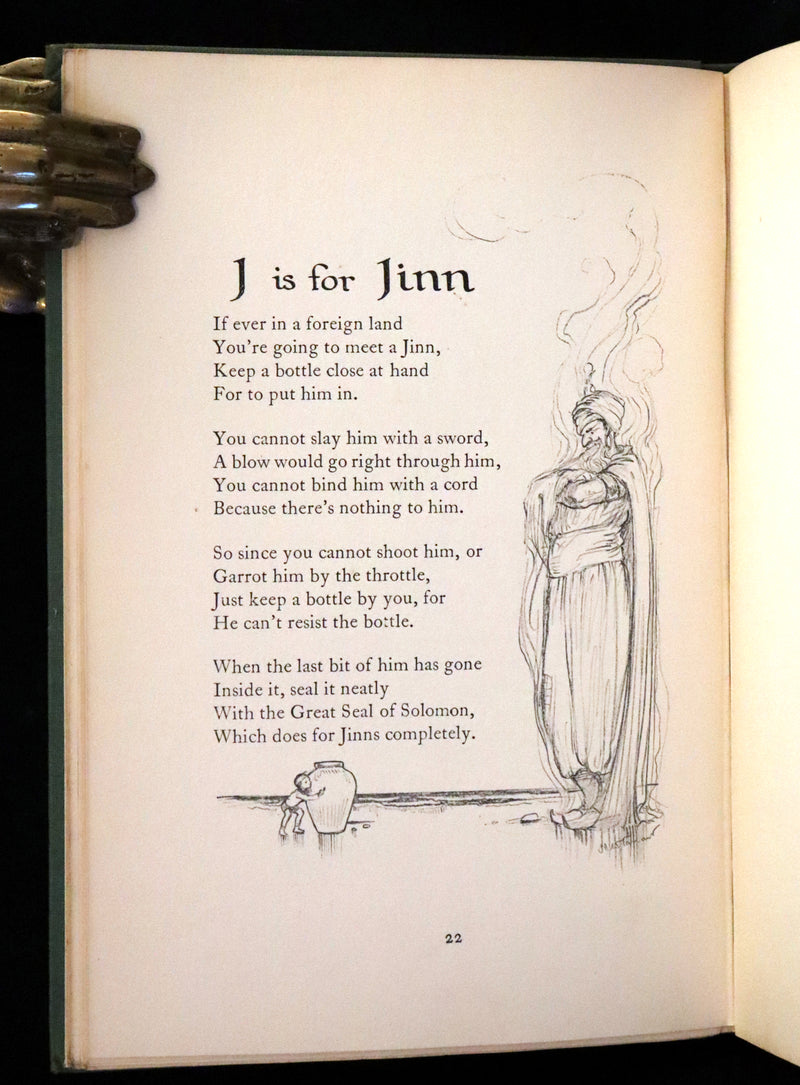 J is for Jinn
If ever in a foreign land
You're going to meet a Jinn,
Keep a bottle close at hand
For to put him in.
You cannot slay him with a sword,
A blow would go right through him,
You cannot bind him with a cord
Because there's nothing to him.
So since you cannot shoot him, or
Garrot him by the throttle,
Just keep a bottle by you, for
He can't resist the bottle.
When the last bit of him has gone
Inside it, seal it neatly
With the Great Seal of Solomon,
Which does for Jinns completely.
22